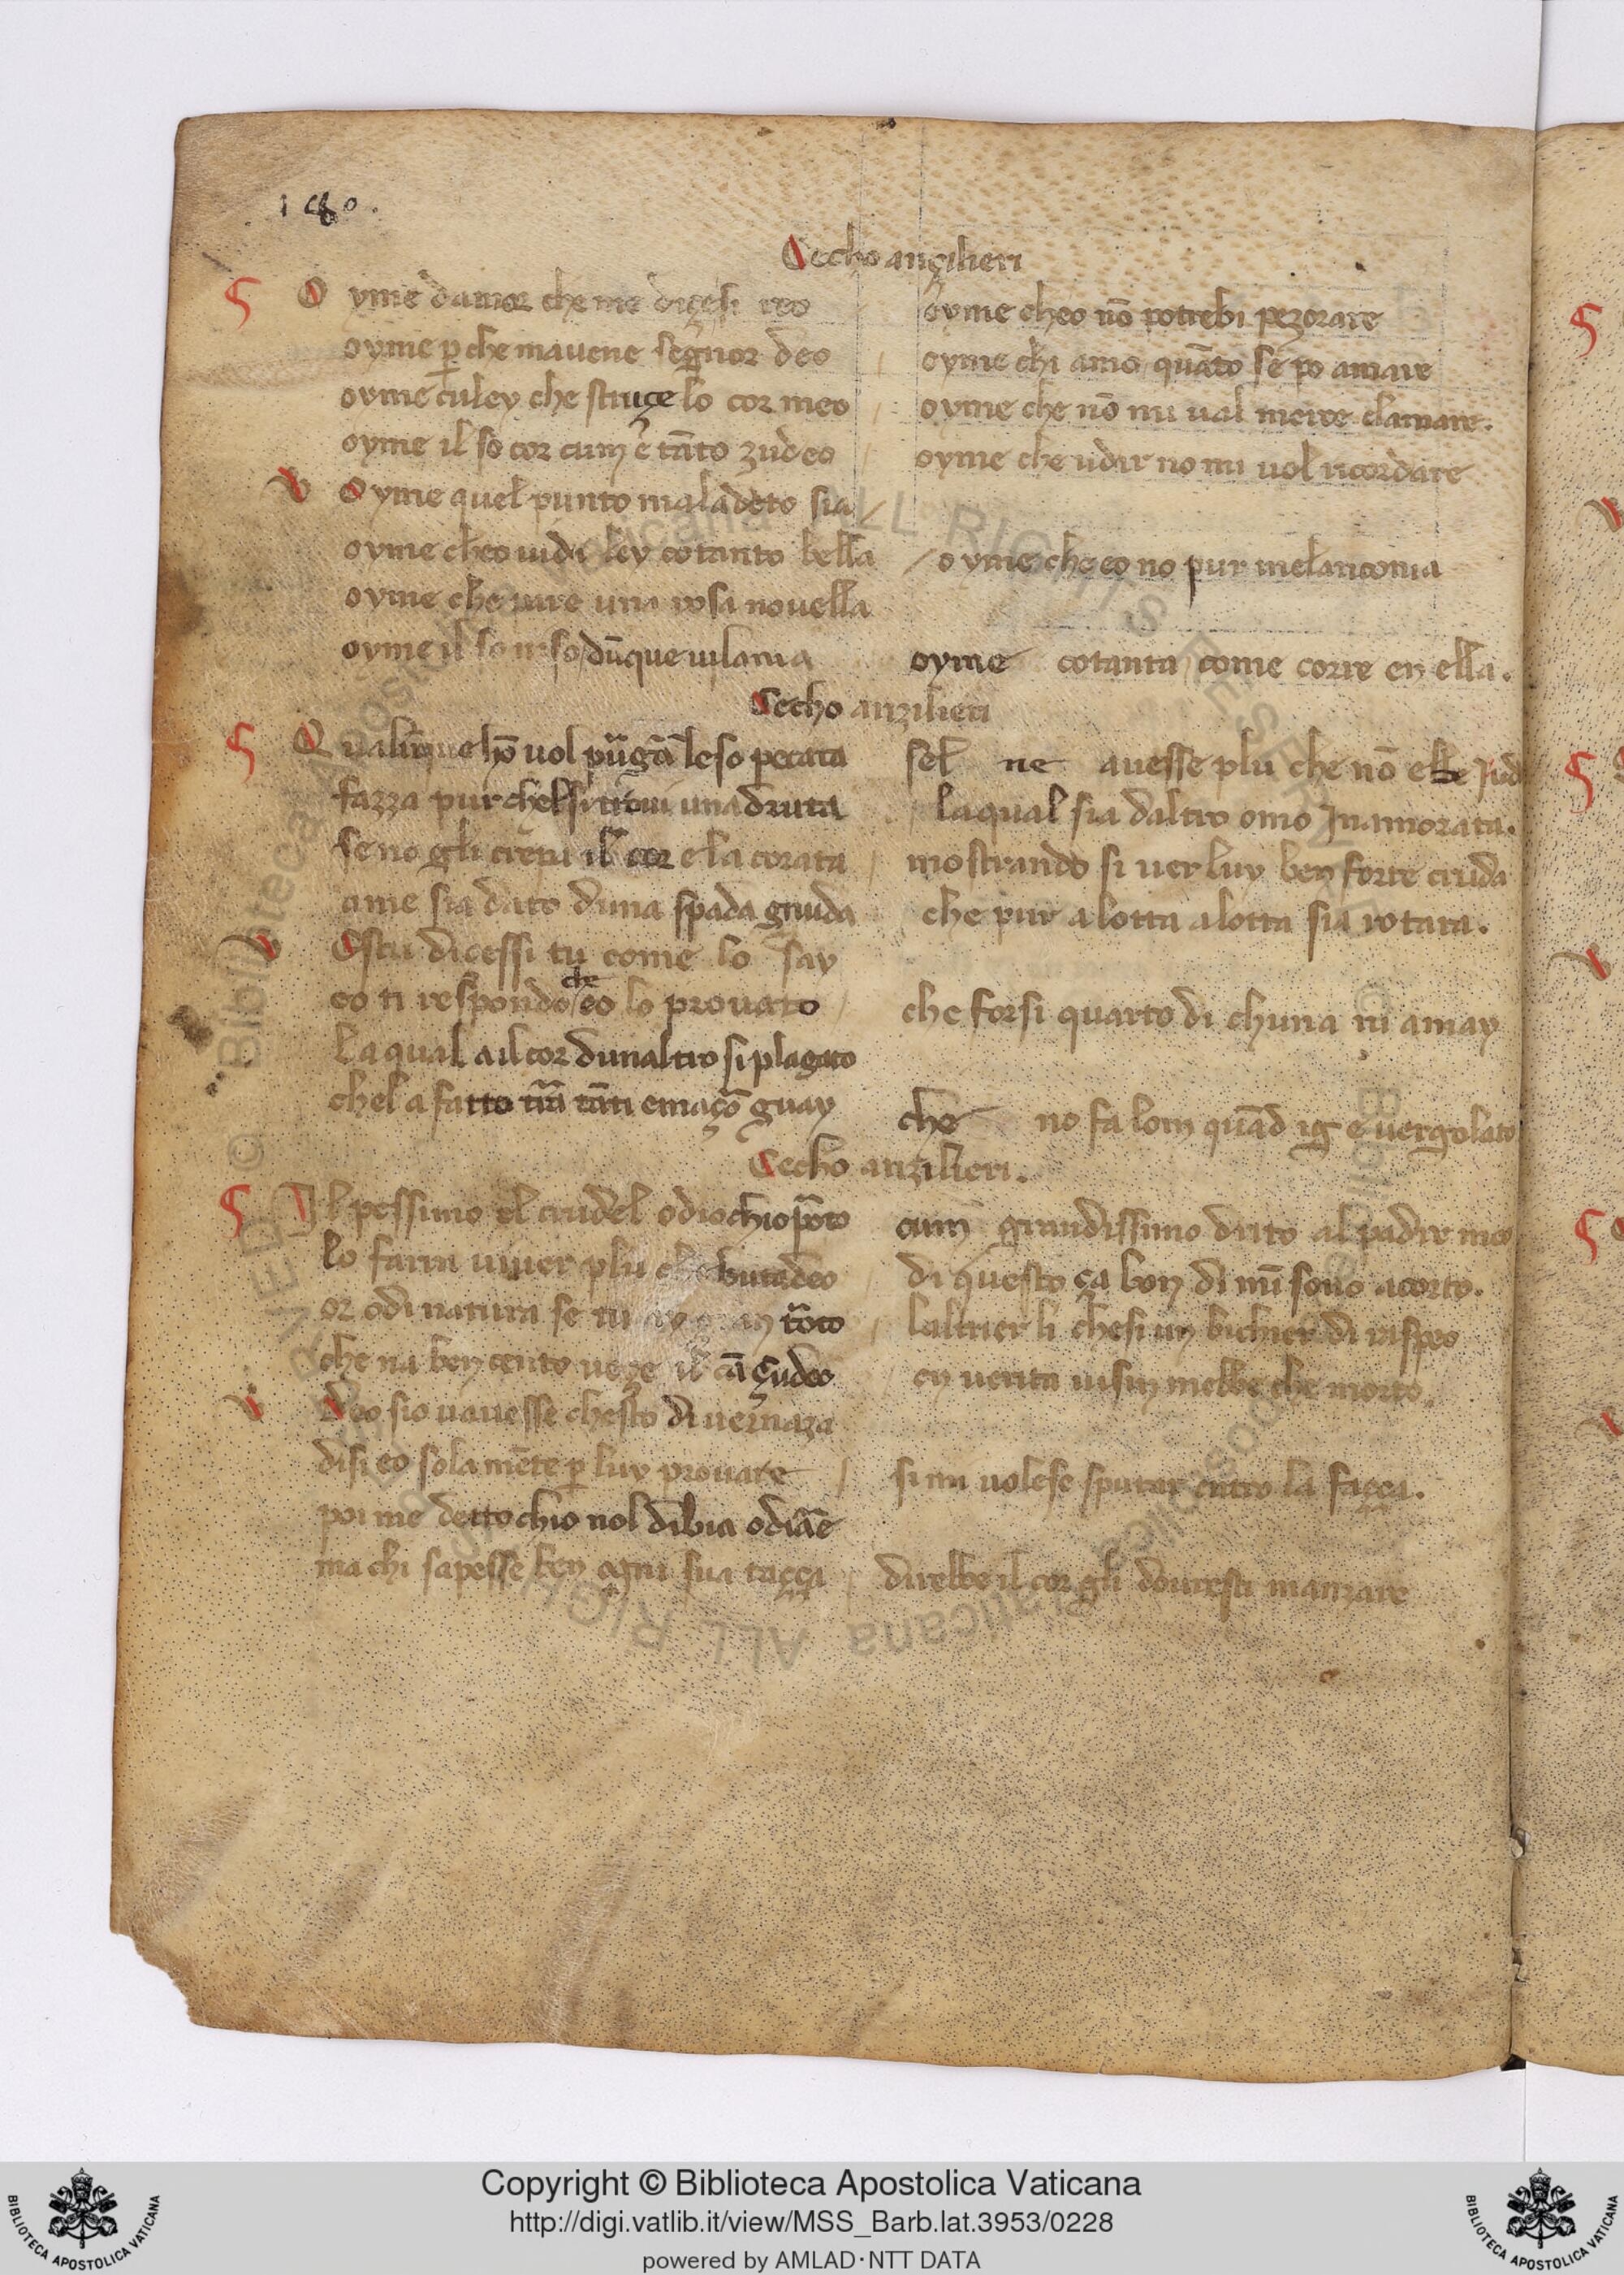 180.
Cecho ançilieri
O yme damor che me diçesi reo
oyme cheo nō potrebi pezorare
oyme ꝑche mauene segnor deo
oyme chi amo quāto se po amare
oyme culey che struçe lo cor meo
oyme che nō mi ual merçe clamare.
oyme il so cor cum e tāto zudeo
oyme che udir no mi uol ricordare
Oyme quel punto maladeto sia
oyme cheo uidi ley cotanto bella
oyme che eo no pur melanconia
oyme che pare una rosa nouella
oyme il so uiso dūque uilania
oyme cotanta come corre en ella.
Cecho anzilieri
Qualūque hō uol pūgā le so pecata
sel ne auesse plu che nō ebbe Iud
fazza pur chel si troui una druta
la qual sia daltro omo Inamorata.
se no gli crepa il cor e la corata
mostrando si uer luy ben forte cruda
ame sia dato duna spada gnuda
che pur alotta alotta sia rotata.
Estu dicessi tu come lo say
eo ti respondo che eo lo prouato
che forsi quarto di chuna ni amay
La qual a il cor dunaltro si plagato
chel a fatto trā tāti emaçō guay
che no fa lom quād ig e uergolato
Cecho anzilieri.
Il pessimo el crudel odio chio porto
cum grandissimo drito al padre meo
lo farra uiuer plu che butadeo
di questo ça bon di mī sono acorto.
or odi natura se tu ay gran torto
laltrier li chesi un bichier di raspeo
che na ben cento ueze il cā çudeo
en uerita uisin mebbe che morto
Deo sio uauesse chesto di uernaza
disi eo solamēte ꝑ luy prouare
si mi uolese sputar entro la façça.
poi me detto chio nol dibia odiāe
ma chi sapesse ben ogni sua taçça
direbbe il cor gli douresti manzare
Copyright © Biblioteca Apostolica Vaticana
http://digi.vatlib.it/view/MSS_Barb.lat.3953/0228
powered by AMLAD·NTT DATA
BIBLIOTECA APOSTOLICA VATICANA
BIBLIOTECA APOSTOLICA VATICANA